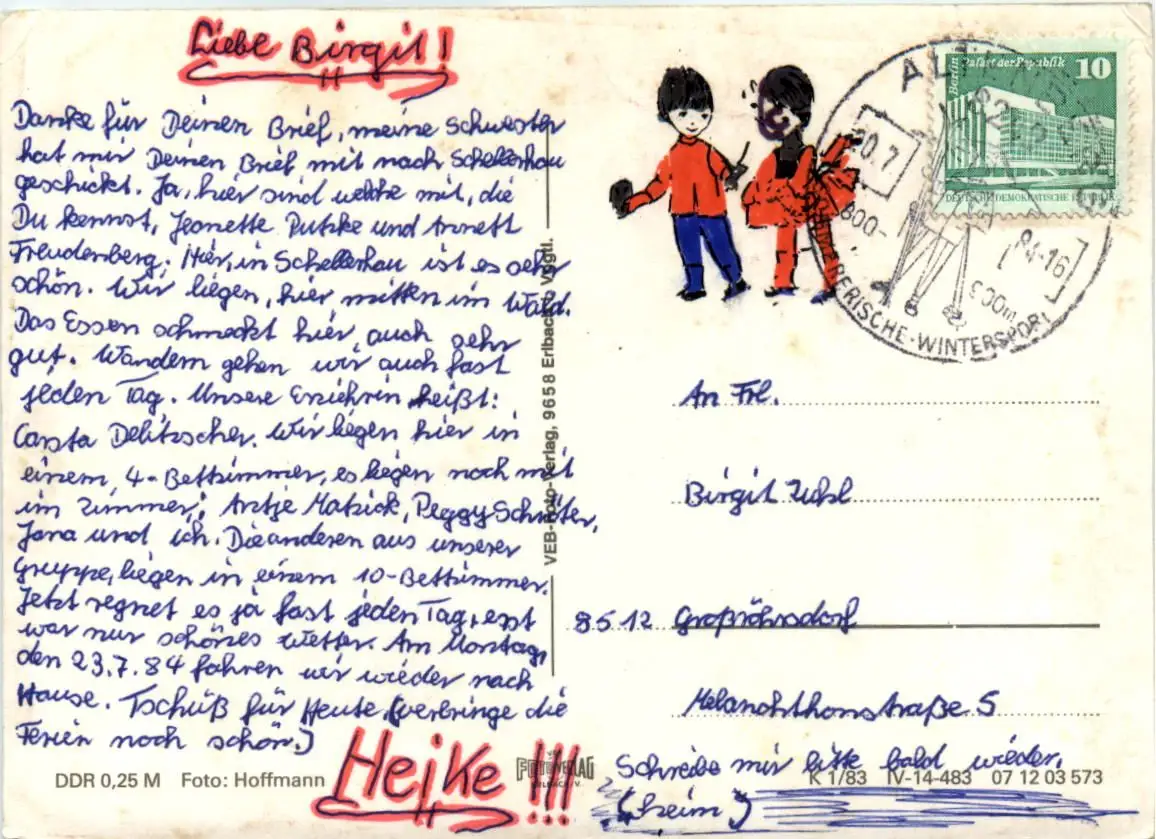 Liebe Birgit!
Danke für Deinen Brief, meine Schwester
hat mir Deinen Brief mit nach Schellerhau
geschickt. Ja, hier sind welche mit, die
Du kennst, Jeanette Putzke und Annett
Freudenberg. Hier, in Schellerhau ist es sehr
schön. Wir liegen, hier mitten im Wald.
Das Essen schmeckt hier, auch sehr
gut. Wandern gehen wir auch fast
jeden Tag. Unsere Erziehrin heißt:
Carsta Delitzscher. Wir liegen hier in
einem, 4-Bettzimmer, es liegen noch mit
im Zimmer; Antje Matzick, Peggy Schröter,
Jana und ich. Die anderen aus unserer
Gruppe, liegen in einem 10-Bettzimmer.
Jetzt regnet es ja fast jeden Tag, erst
war nur schönes Wetter. Am Montag,
den 23.7.84 fahren wir wieder nach
Hause. Tschüß für Heute, (verbringe die
Ferien noch schön.)
Heike!!!
DDR 0,25 M Foto: Hoffmann
VEB-Foto-Verlag, 9658 Erlbach, Vogtl.
FOTOVERLAG
Berlin Palast der Republik 10
DEUTSCHE DEMOKRATISCHE REPUBLIK
ALT
20.7
84-16
800-
900m
WINTERSPORT
An Frl.
Birgit Uhl
8512 Großröhrsdorf
Melanchthonstraße 5
Schreibe mir bitte bald wieder.
(heim)
K 1/83 IV-14-483 07 12 03 573